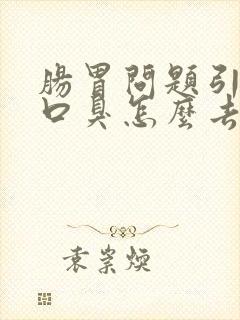 腸胃問題引
口臭怎麼去
袁崇煥